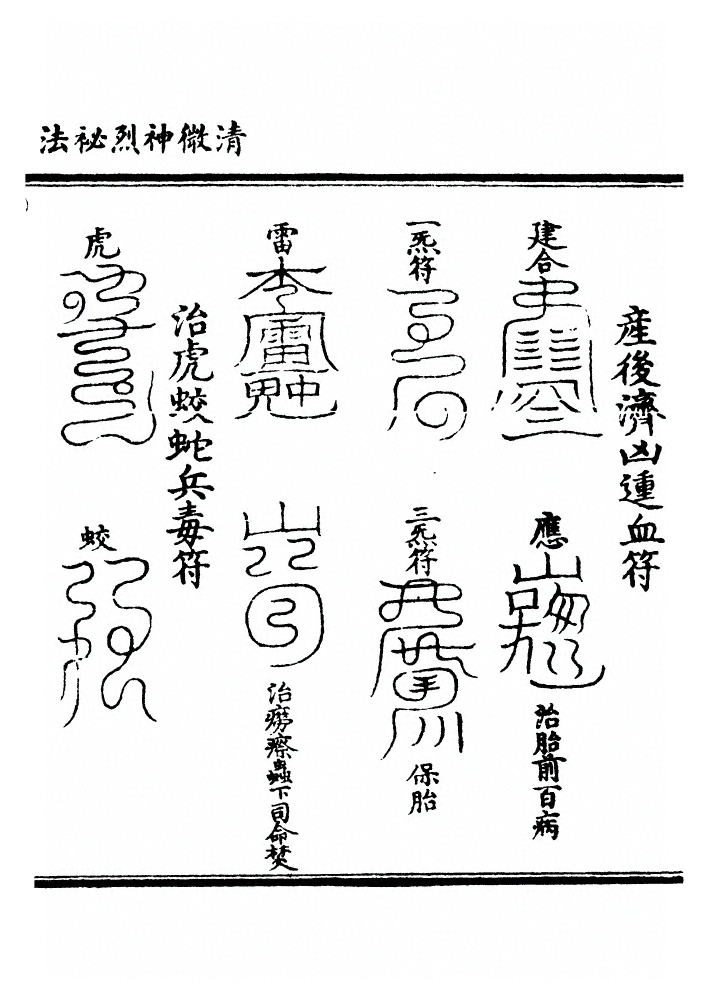 清微神烈祕法
產後濟凶逓血符
建合
應
治胎前百病
一炁符
三炁符
保胎
雷
治癆瘵蟲下司命焚
治虎蛟蛇兵毒符
虎
蛟